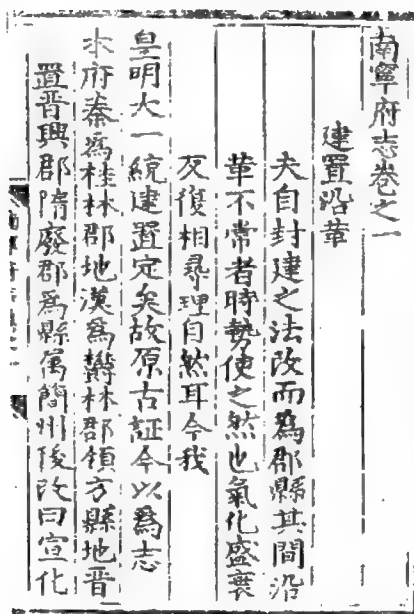 南寧府志卷之一
建置沿革
夫自封建之法改而為郡縣其間沿
革不常者時勢使之然也氣化盛衰
反復相尋理自然耳今我
皇明大一統建置定矣故原古証今以為志
本府秦為桂林郡地漢為欝林郡領方縣地晋
置晋興郡隋廢郡為縣屬簡州後改曰宣化